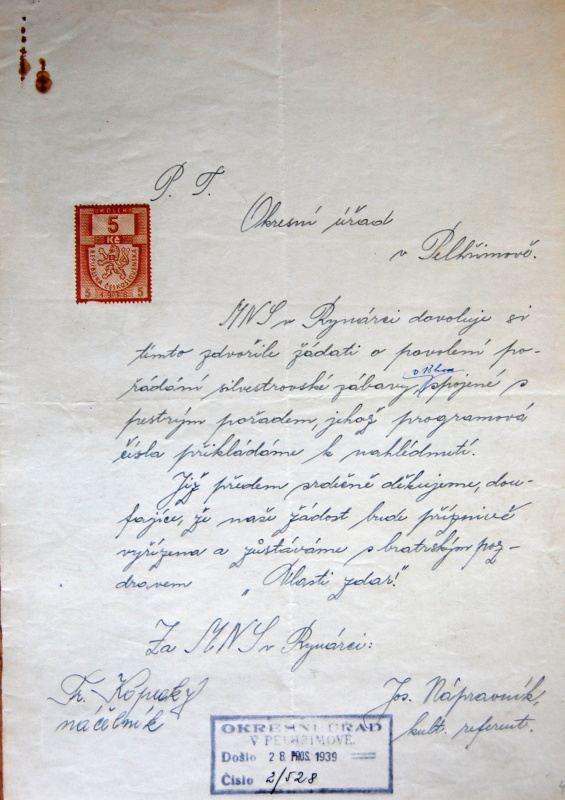 P. T.
Okresní úřad
v Pelhřimově.
KOLEK
5
Kč
REPUBLIKA ČESKOSLOVENSKÁ
5 1938 5
MNS v Rynárci dovoluje si
tímto zdvořile žádati o povolení po-
v 18 hod
řádání silvestrovské zábavy spojené s
pestrým pořadem, jehož programová
čísla přikládáme k nahlédnutí.
Již předem srdečně děkujeme, dou-
fajíce, že naše žádost bude příznivě
vyřízena a zůstáváme s bratrským poz-
dravem „Vlasti zdar!"
Za MNS v Rynárci:
Fr.
náčelník
Jos. Nápravník,
kult. referent.
OKRESNÍ ÚŘAD
V PELHŘIMOVĚ.
Došlo 28. PROS. 1939
Číslo 2/528